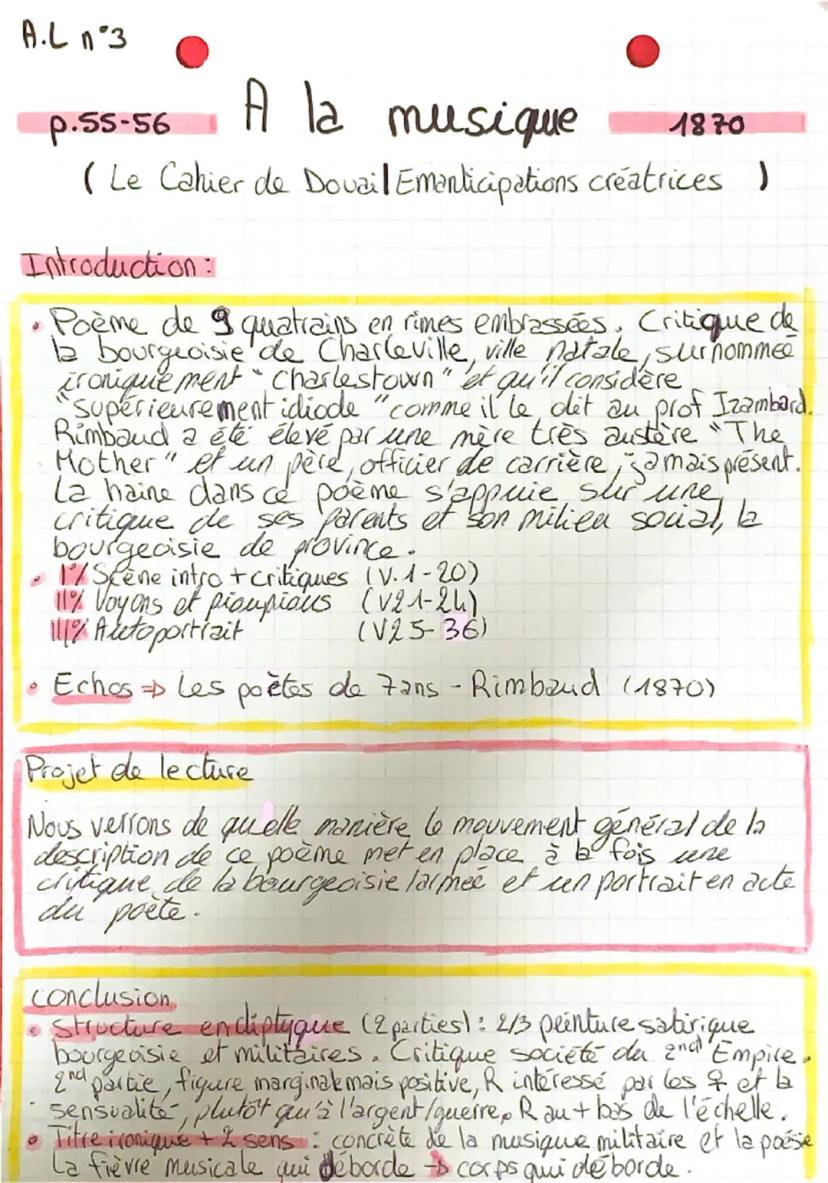 A.L n°3
p.55-56 A la musique 1870
( Le Cahier de Douai | Emanticipations créatrices )
Introduction :
• Poème de 9 quatrains en rimes embrassées. Critique de
la bourgeoisie de Charleville, ville natale, surnommée
ironiquement "Charlestown" et qu'il considère
"supérieurement idiode" comme il le dit au prof Izambard.
Rimbaud a été élevé par une mère très austère "The
Mother" et un père, officier de carrière, jamais présent.
La haine dans ce poème s'appuie sur une
critique de ses parents et son milieu social, la
bourgeoisie de province.
• I°/ Scène intro + critiques (V.1-20)
II°/ Voyons et pioupious (V21-24)
III°/ Autoportrait (V25-36)
• Echos => Les poètes de 7ans - Rimbaud (1870)
Projet de lecture
Nous verrons de quelle manière le mouvement général de la
description de ce poème met en place à la fois une
critique de la bourgeoisie/armée et un portrait en acte
du poète.
Conclusion
• Structure en diptyque (2 parties) : 2/3 peinture satirique
bourgeoisie et militaires. Critique société du 2nd Empire.
2nd partie, figure marginale mais positive, R intéressé par les ♀ et la
sensualité, plutôt qu'à l'argent/guerre, R au + bas de l'échelle.
• Titre ironique + 2 sens : concrète de la musique militaire et la poésie
La fièvre musicale qui déborde -> corps qui déborde.